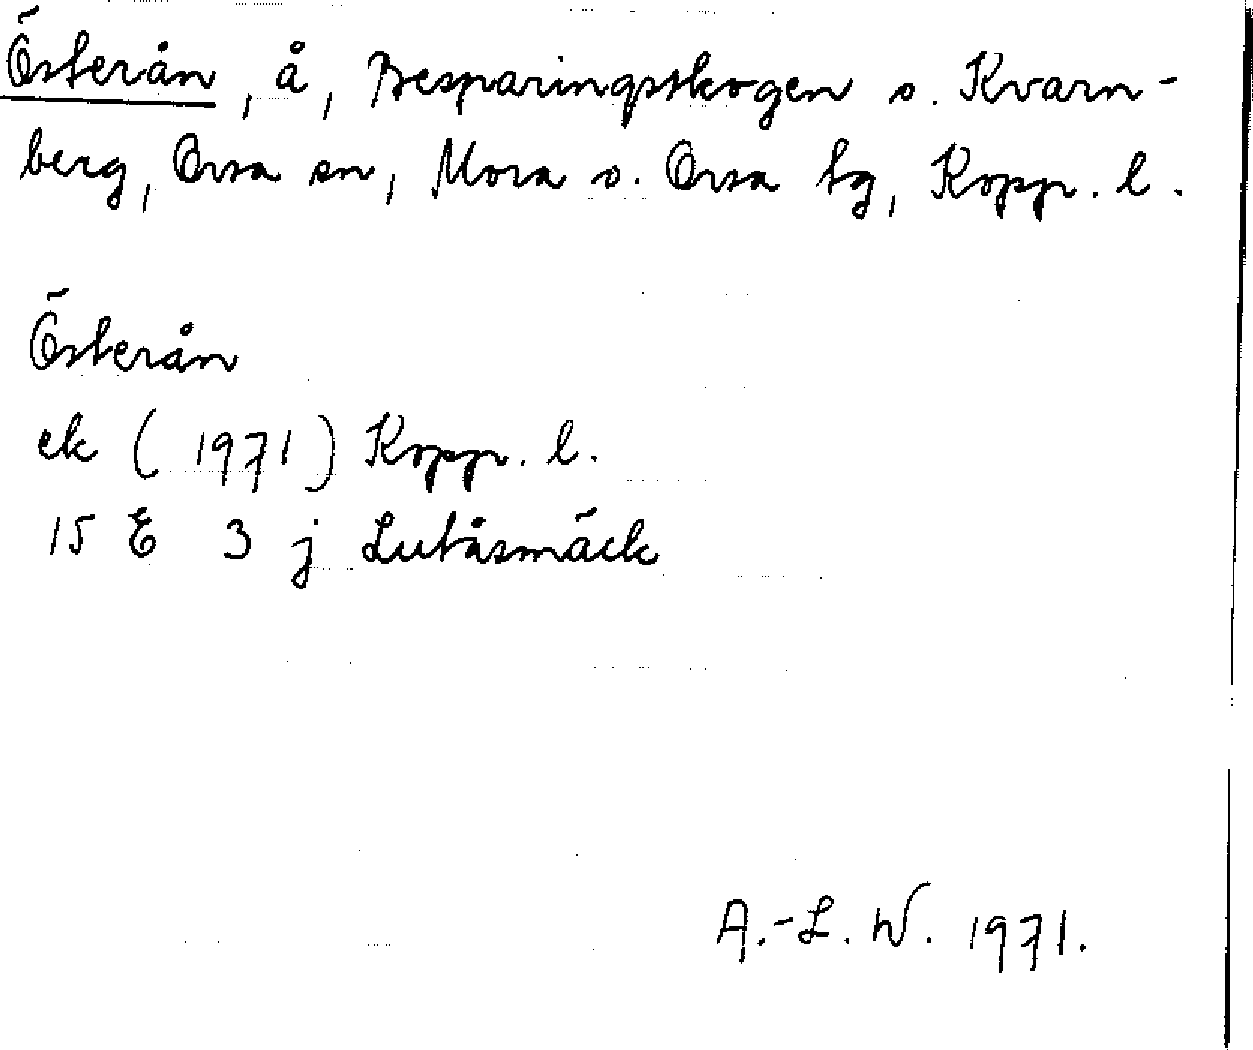 Österån, å, Besparingsskogen o. Kvarn-
berg, Orsa sn, Mora o. Orsa tg, Kopp. l.
Österån
ek (1971) Kopp. l.
15 E 3 j Lutåsmäck
A.-L. W. 1971.